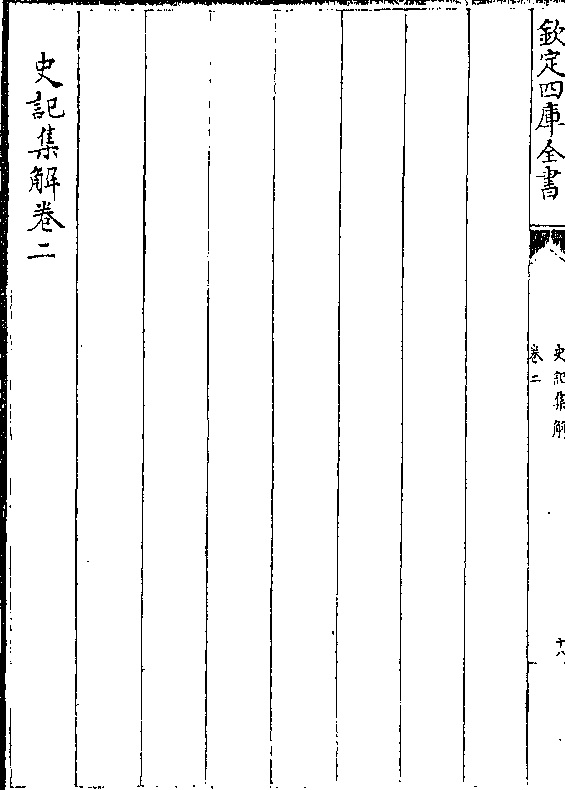 欽定四庫全書
史記集解
卷二
十八
史記集解卷二